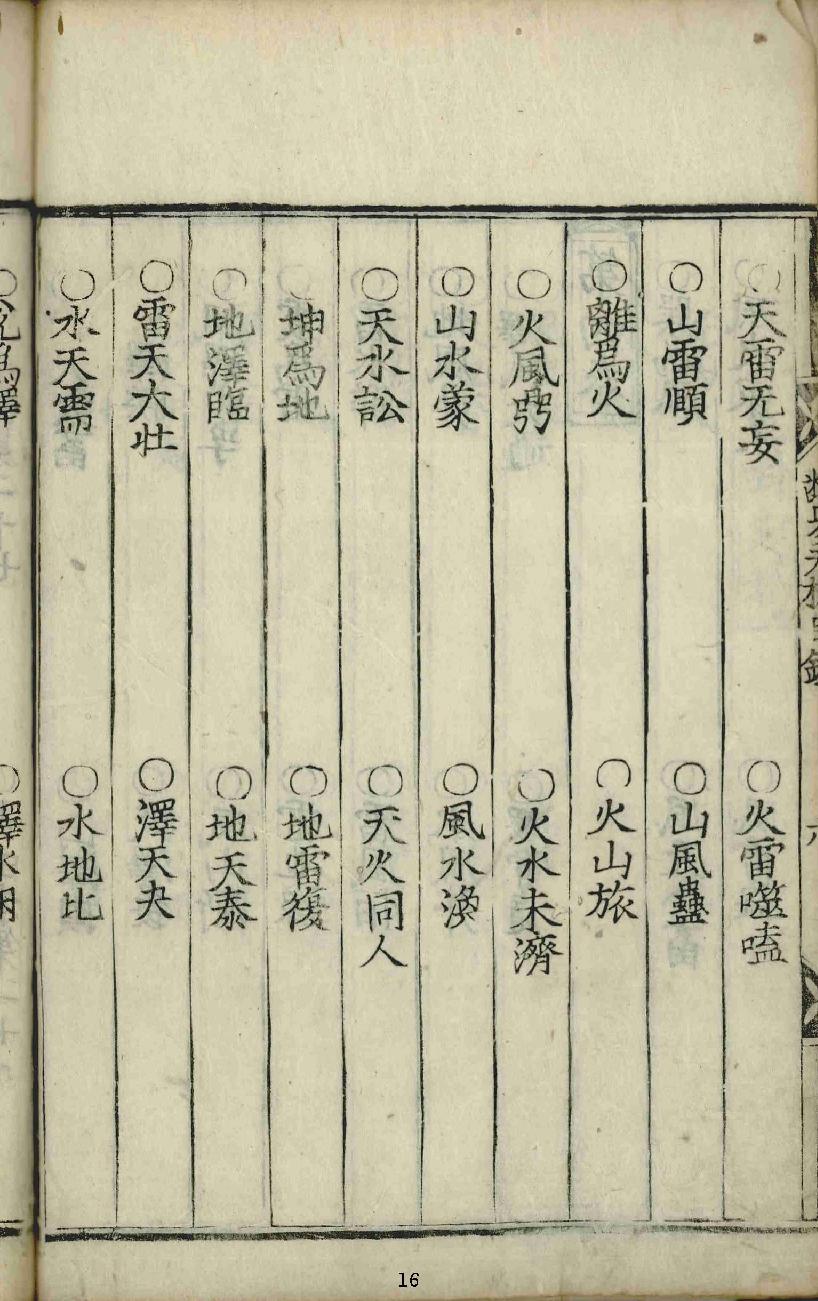 ○天雷无妄 ○火雷噬嗑
○山雷頤 ○山風蠱
○離爲火 ○火山旅
○火風鼎 ○火水未濟
○山水蒙 ○風水渙
○天水訟 ○天火同人
○坤爲地 ○地雷復
○地澤臨 ○地天泰
○雷天大壯 ○澤天夬
○水天需 ○水地比
16